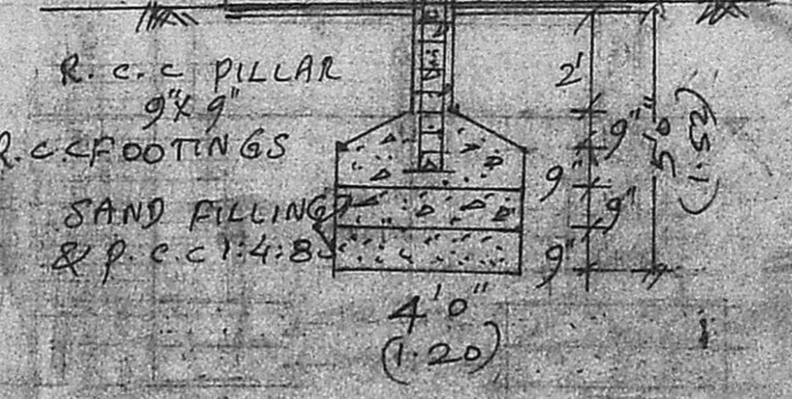 R.C.C PILLAR
9"X 9"
R.C.C FOOTINGS
SAND FILLING
& P.C.C 1:4:8
2'
9"
9"
9"
9"
5'0"
(1.52)
4'0"
(1.20)